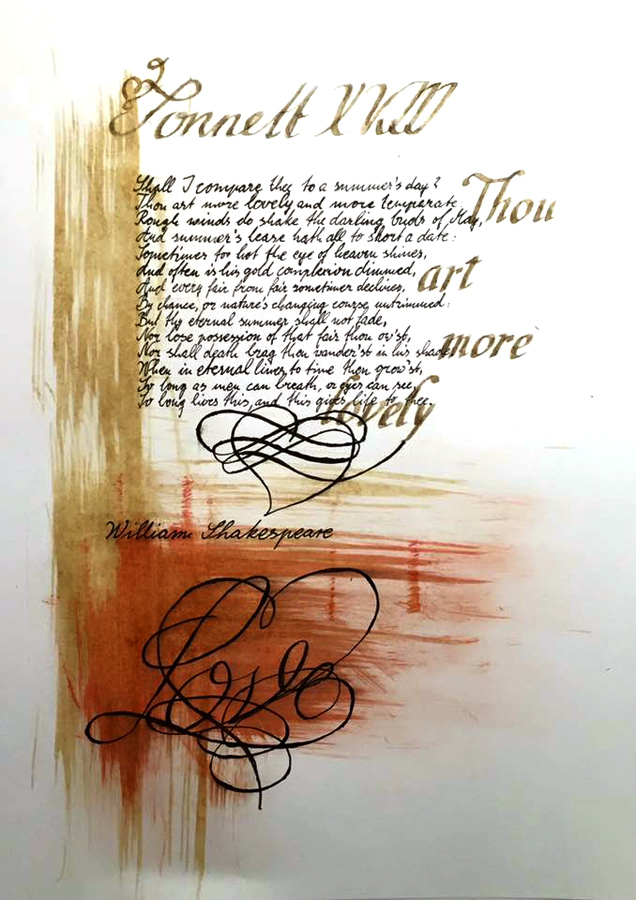 Sonnett XVIII
Shall I compare thee to a summer's day?
Thou art more lovely and more temperate
Rough winds do shake the darling buds of May,
And summer's lease hath all to short a date:
Sometimes too hot the eye of heaven shines,
And often is his gold complexion dimmed,
And every fair from fair sometimes declines,
By chance, or nature's changing course, untrimmed:
But thy eternal summer shall not fade,
Nor lose possession of that fair thou ow'st,
Nor shall death brag thou wander'st in his shade
When in eternal lines to time thou grow'st,
So long as men can breath, or eyes can see
So long lives this, and this gives life to thee.
Thou
art
more
lovely
William Shakespeare
Love